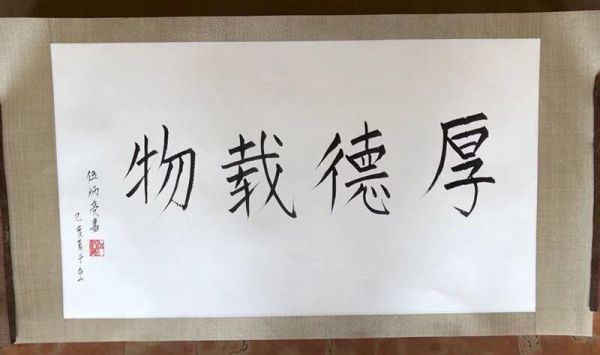 厚德载物
伍炳亮書
己亥夏于台山